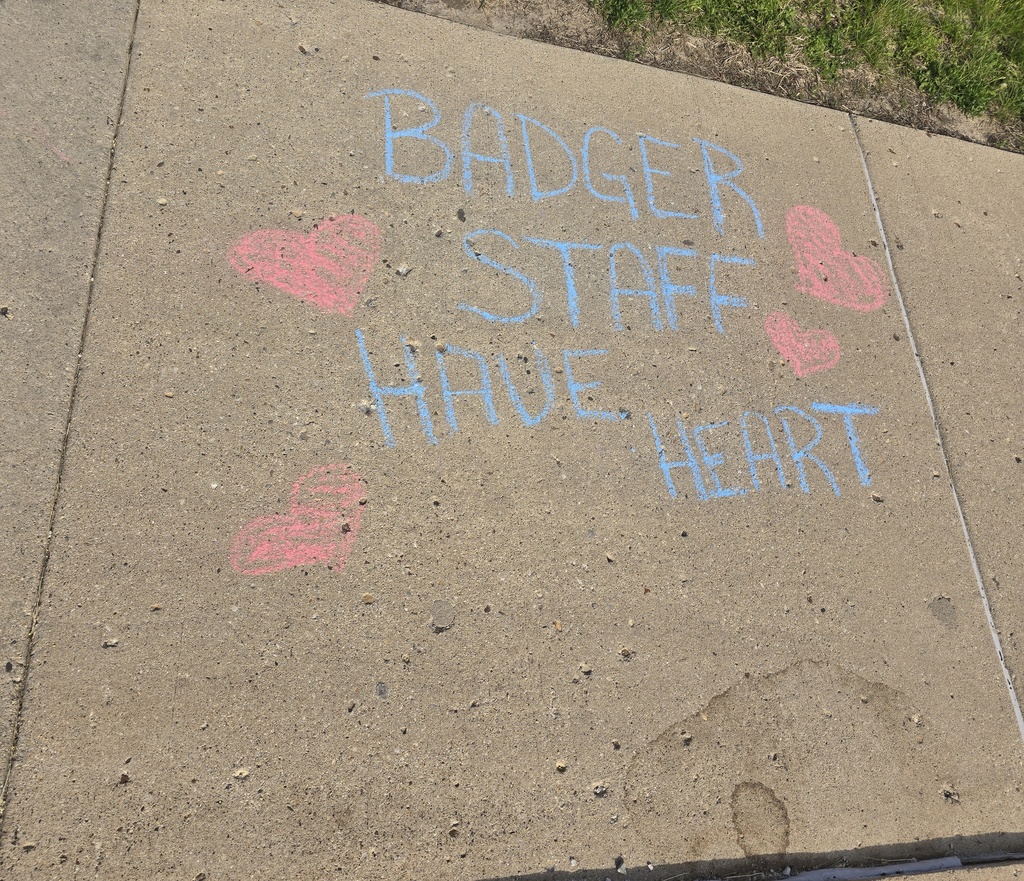 BADGER
STAFF
HAVE
HEART